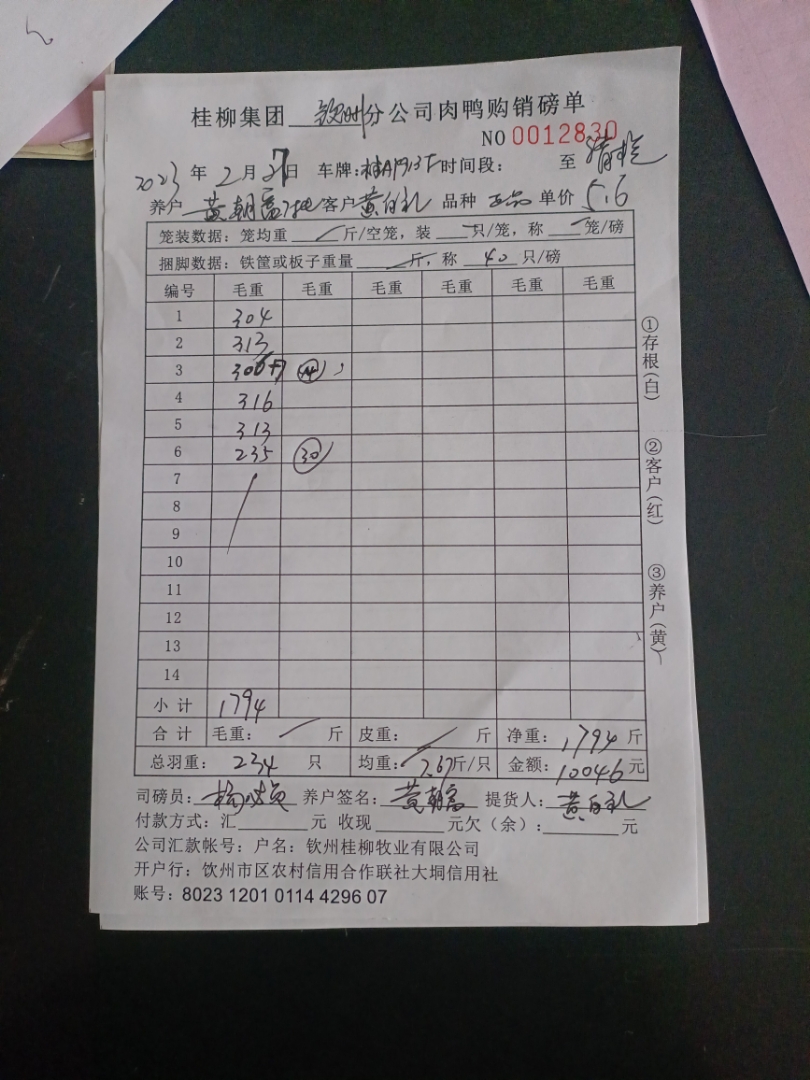 桂柳集团 钦州 分公司肉鸭购销磅单
NO 0012830
2023 年 2 月 27 日 车牌: 时间段: 至
养户 黄朝富 客户 黄自礼 品种 正品 单价 5.6
笼装数据：笼均重 / 斤/空笼，装 只/笼，称 笼/磅
捆脚数据：铁筐或板子重量 斤，称 40 只/磅
编号 毛重 毛重 毛重 毛重 毛重 毛重
1 304
2 313
3
4 316
5 313
6 235 30
7
8
9
10
11
12
13
14
小 计 1794
合 计 毛重： / 斤 皮重： / 斤 净重： 1794 斤
总羽重： 234 只 均重： 7.67 斤/只 金额： 10046 元
司磅员： 养户签名： 黄朝富 提货人： 黄自礼
付款方式：汇 元 收现 元欠（余）： 元
公司汇款帐号：户名：钦州桂柳牧业有限公司
开户行：钦州市区农村信用合作联社大垌信用社
账号：8023 1201 0114 4296 07
①存根（白）
②客户（红）
③养户（黄）